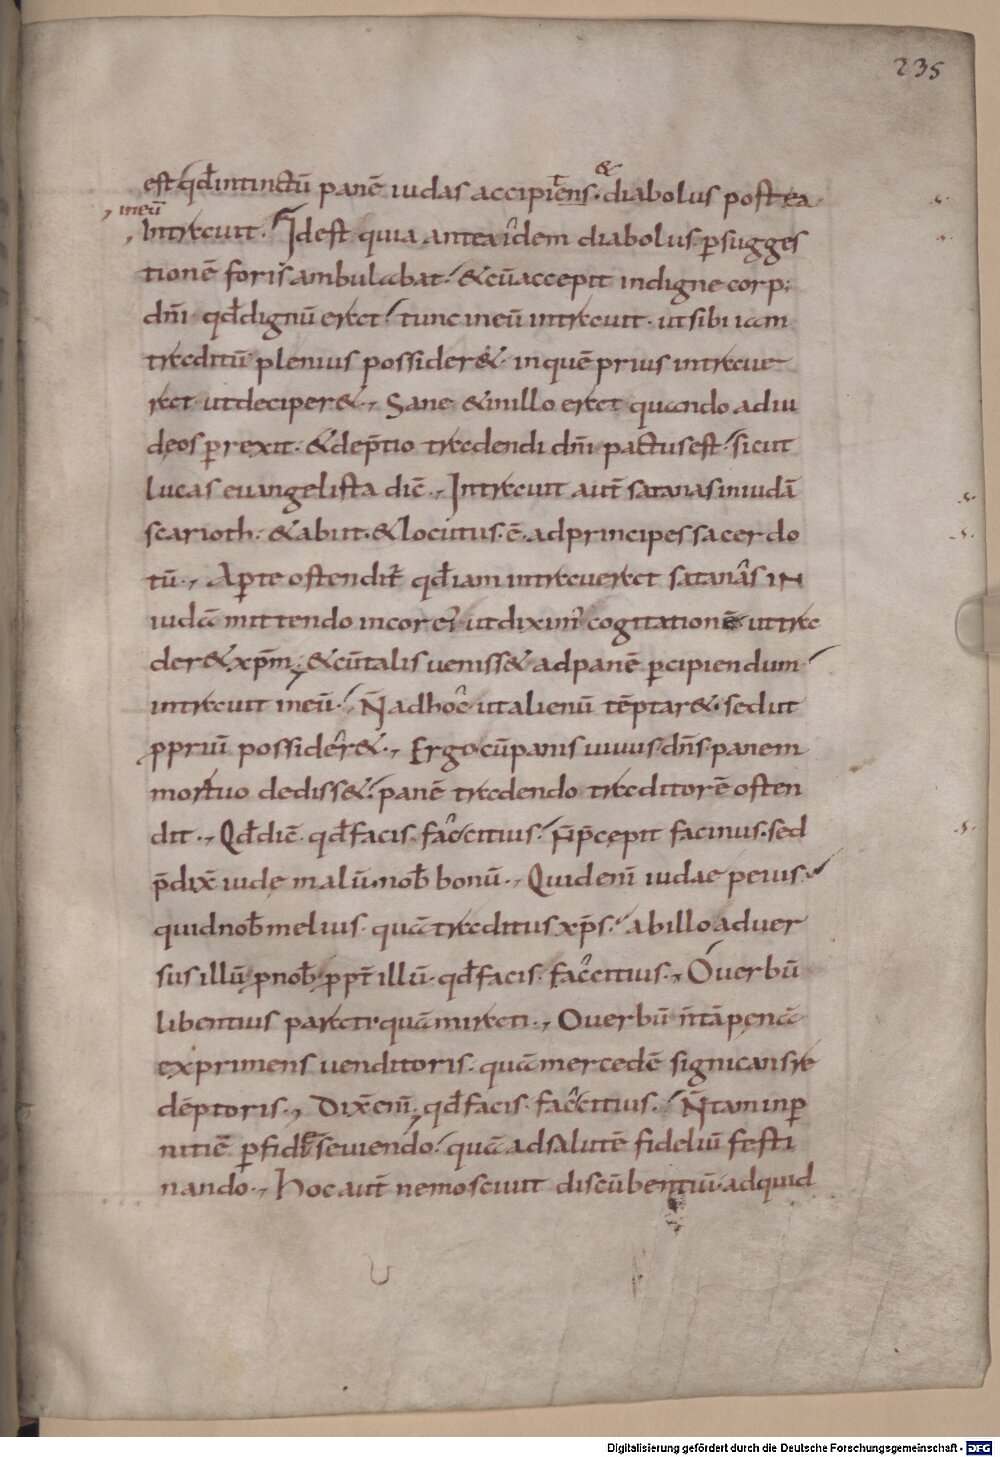 235
est qđ intinctū panē iudas accipiens · & diabolus postea
in eū
intrauit · Idest quia antea idem diabolus psugges
tionē foris ambulabat · & cū accepit indigne corp;
dn̄i · qđ dignū erat · tunc in eū intrauit · ut sibi iam
traditū plenius possider& · in quē prius intraue
rat ut deciper& · Sane & in illo erat quando ad iu
dęos prexit · & de p̄tio tradendi dn̄i pactus est · sicut
lucas euangelista dic̄ · Intrauit aut̄ satanas in iudā
scarioth · & abiit · & locutus · ē · ad principes sacerdo
tū · Aperte ostendit qđ iam intrauerat satanas IN
iudā mittendo in cor ei' ut dixim' cogitationē · ut tra
der& xp̄m · & cū talis ueniss& ad panē pcipiendum
intrauit in eū · N̄ adhoc ut alienū tēptar& · sed ut
ppriū possider& · Ergo cū panis uiuus dn̄s panem
mortuo dediss& · panē tradendo traditorē osten
dit · Qđ dic̄ · qđ facis · fac citius · N̄ p̄cepit facinus · sed
p̄dix̄ iudę malū · nob̄ bonū · Quid enī iudae peius ·
quid nob̄ melius · quā traditus xp̄s · ab illo aduer
sus illū p nob̄ · ppt̄ illū · qđ facis · fac citius · O uerbū
libentius parati quā irati · O uerbū n̄ tā pęnā
exprimens uenditoris · quā mercedē signicans re
dēptoris · Dix̄ enī · qđ facis · fac citius · N̄ tam in p
nitiē pfidi seuiendo · quā ad salutē fideliū festi
nando · Hoc aut̄ nemo sciuit discūbentiū · ad quid
Digitalisierung gefördert durch die Deutsche Forschungsgemeinschaft - DFG